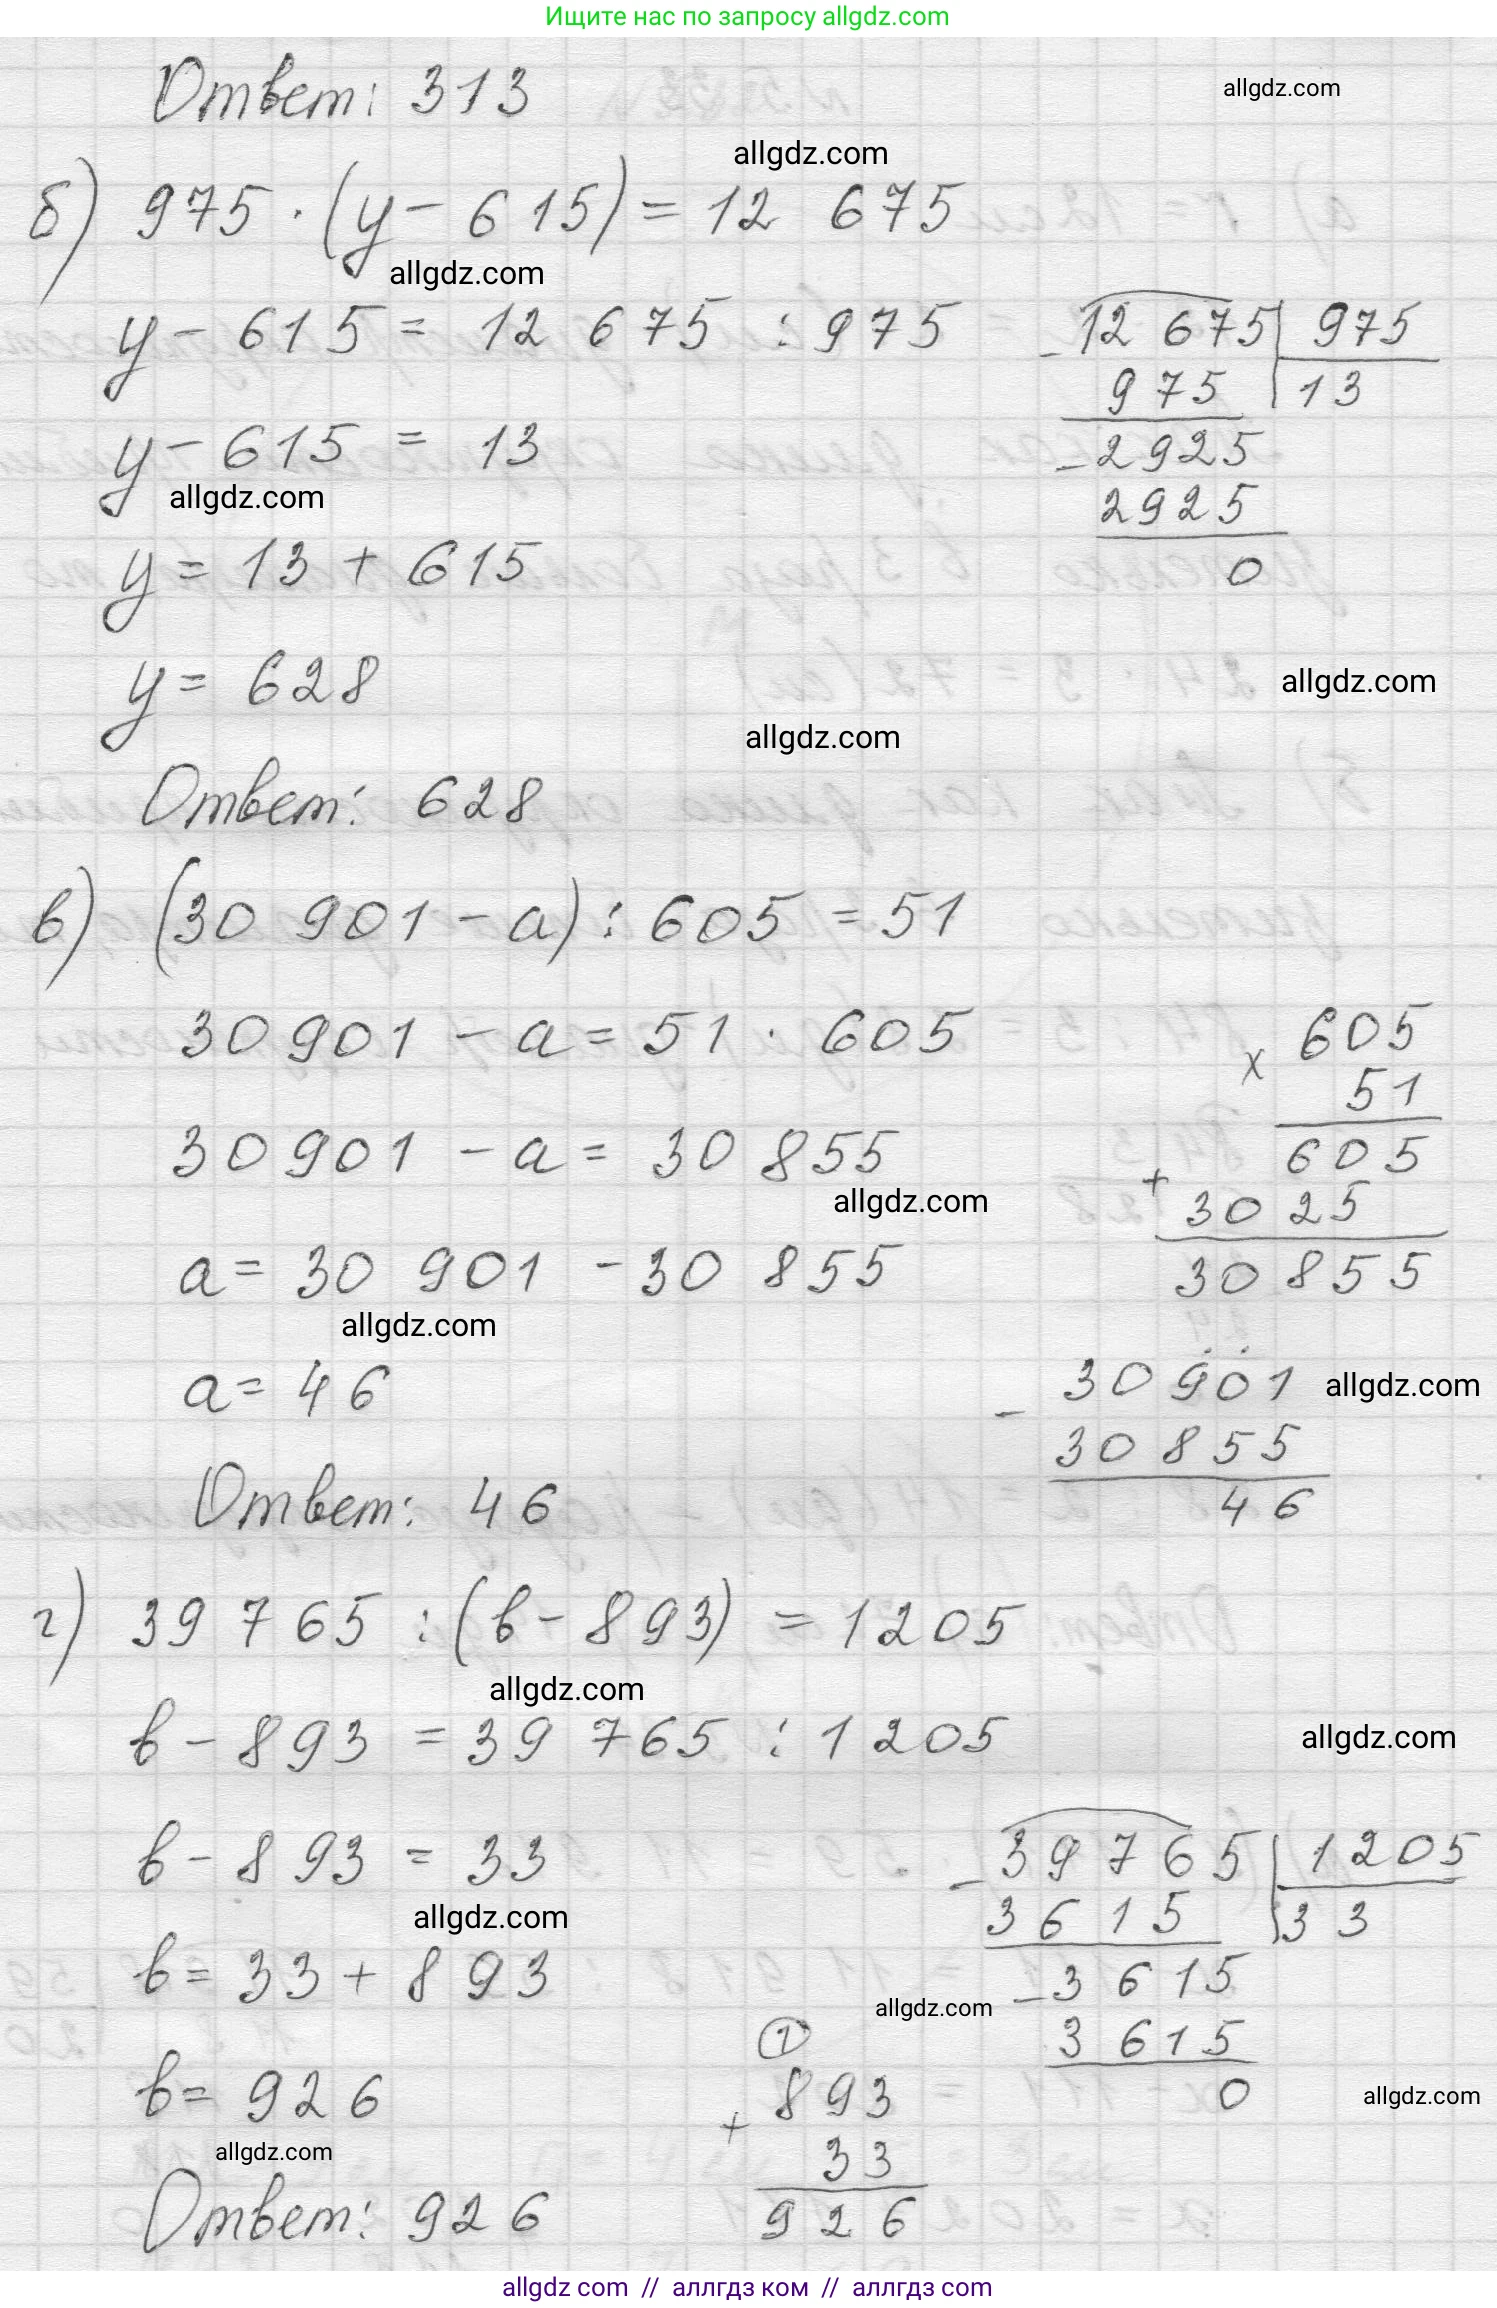 Ищите нас по запросу allgdz.com
Ответ: 313
allgdz.com
allgdz.com
б) 975 · (y - 615) = 12 675
allgdz.com
y - 615 = 12 675 : 975
12 675 | 975
- 975 | 13
y - 615 = 13
- 2925
allgdz.com
2925
y = 13 + 615
0
y = 628
allgdz.com
allgdz.com
Ответ: 628
в) (30 901 - a) : 605 = 51
30 901 - a = 51 · 605
x 605
51
30 901 - a = 30 855
605
allgdz.com
+ 3025
a = 30 901 - 30 855
30 855
allgdz.com
a = 46
- 30 901
allgdz.com
30 855
Ответ: 46
46
г) 39 765 : (b - 893) = 1205
allgdz.com
b - 893 = 39 765 : 1205
allgdz.com
b - 893 = 33
- 39765 | 1205
3615 | 33
allgdz.com
b = 33 + 893
- 3615
allgdz.com
3615
0
1
b = 926
+ 893
allgdz.com
33
allgdz.com
926
Ответ: 926
allgdz com // аллгдз ком // аллгдз com